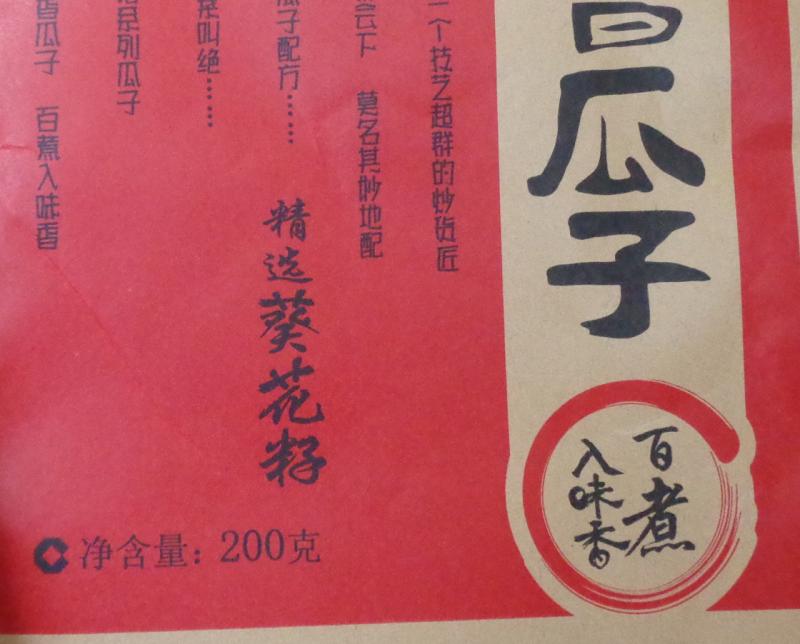 瓜子
百煮
入味香
一个技艺超群的炒货匠
天下 莫名其妙地配
瓜子配方……
叫绝……
系列瓜子
香瓜子 百煮入味香
精选葵花籽
净含量：200克